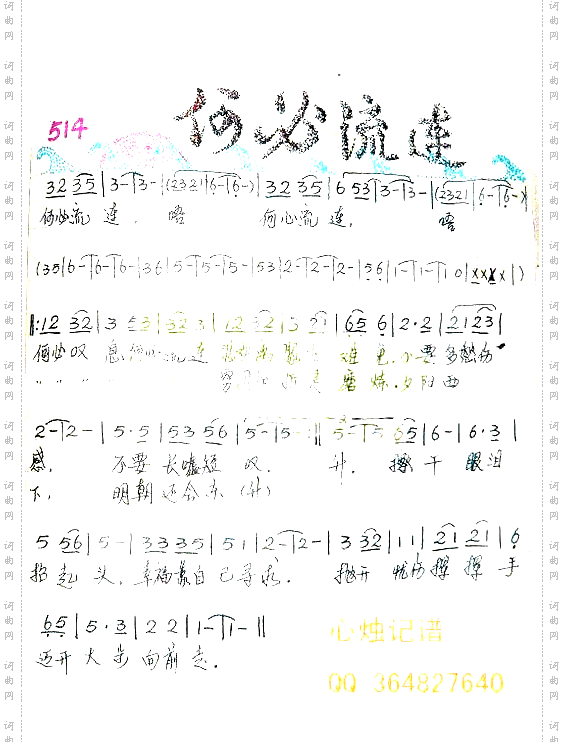 514
何必流连
32 35 | 3-| 3- | (2321 | 6-| 6- ) | 32 35 | 6 53 | 3-| 3- | (2321 | 6-| 6- )
何必流 连, 唔 何必流 连, 唔
(35 | 6-| 6-| 6- | 36 | 5-| 5-| 5- | 53 | 2-| 2-| 2- | 56 | 1-| 1-| 1 0 | xxxx | )
|: 12 32 | 3 53 | 32 3 | 12 32 | 3 21 | 65 6 | 2·2 | 2123 |
何必叹 息 何必流 连 难 免,不要多愁伤
" " " " 磨 炼,夕阳西
2-| 2- | 5·5 | 53 56 | 5-| 5- :|| 5-| 5 65 | 6- | 6·3 |
感, 不要 长嘘短 叹. 升. 擦 干 眼泪
下, 明朝 还会东 (升)
5 56 | 5- | 33 35 | 51 | 2-| 2- | 3 32 | 11 | 21 21 | 6
抬起 头, 幸福靠自 己寻求. 抛开 忧伤 挥 挥 手
65 | 5·3 | 2 2 | 1-| 1- ||
迈开 大 步 向前 走.
心烛记谱
QQ 364827640
词曲网